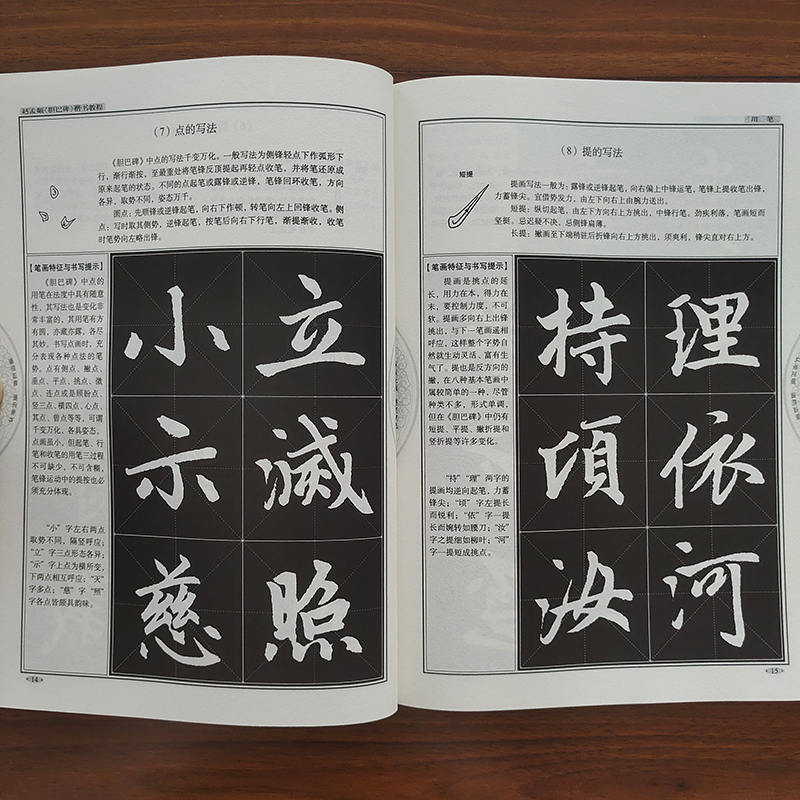 赵孟頫《胆巴碑》楷书教程
（7）点的写法
《胆巴碑》中点的写法千变万化。一般写法为侧锋轻点下作弧形下
行，渐行渐按，至最重处将笔锋反顶提起再轻点收笔，并将笔还原成
原来起笔的状态。不同的点笔或露锋或逆锋，笔锋回环收笔，方向
各异，取势不同，姿态万千。
圆点：先顺锋或逆锋起笔，向右下作顿，转笔向左上回锋收笔。侧
点：写时取其侧势，逆锋起笔，按笔后向右下行笔，渐提渐收，收笔
时笔势向左略出锋。
【笔画特征与书写提示】
《胆巴碑》中点的
用笔在法度中具有随意
性，其写法也是变化非
常丰富的，其用笔有方
有圆，亦藏亦露，各尽
其妙。书写点画时，充
分表现各种点法的笔
势。点有侧点、撇点、
垂点、平点、挑点、微
点、连点或是顾盼点、
竖三点、横四点、心点、
其点、曾点等等，可谓
千变万化，各具姿态。
点画虽小，但起笔、行
笔和收笔的用笔三过程
不可缺少，不可含糊，
笔锋运动中的提按也必
须充分体现。
“小”字左右两点
取势不同，隔竖呼应；
“立”字三点形态各异；
“示”字上点为横所变，
下两点相互呼应；“灭”
字多点；“慈”字“照”
字各点皆颇具韵味。
小 立
示 滅
慈 照
14
用 笔
（8）提的写法
短提
提画写法一般为：露锋或逆锋起笔，向右偏上中锋运笔，笔锋上提收笔出锋，
力蓄锋尖。宜借势发力，由左下向右上由腕力送出。
短提：纵切起笔，由左下方向右上方挑出，中锋行笔，劲疾利落，笔画短而
坚挺。忌迟疑不决，忌侧锋扁薄。
长提：撇画至下端稍驻后折锋向右上方挑出，须爽利，锋尖直对右上方。
【笔画特征与书写提示】
提画是挑点的延
长，用力在本，得力在
末，要控制力度，不可
软。提画多向右上出锋
挑出，与下一笔画遥相
呼应，这样整个字势自
然就生动灵活、富有生
气了。提也是反方向的
撇，在八种基本笔画中
属较简单的一种，尽管
种类不多，形式单调，
但在《胆巴碑》中仍有
短提、平提、撇折提和
竖折提等许多变化。
“持”“理”两字的
提画均逆向起笔，力蓄
锋尖；“顷”字左提长
而锐利；“依”字一提
长而婉转如腰刀；“汝”
字之提细如柳叶；“河”
字一提短成挑点。
持 理
頃 依
汝 河
15